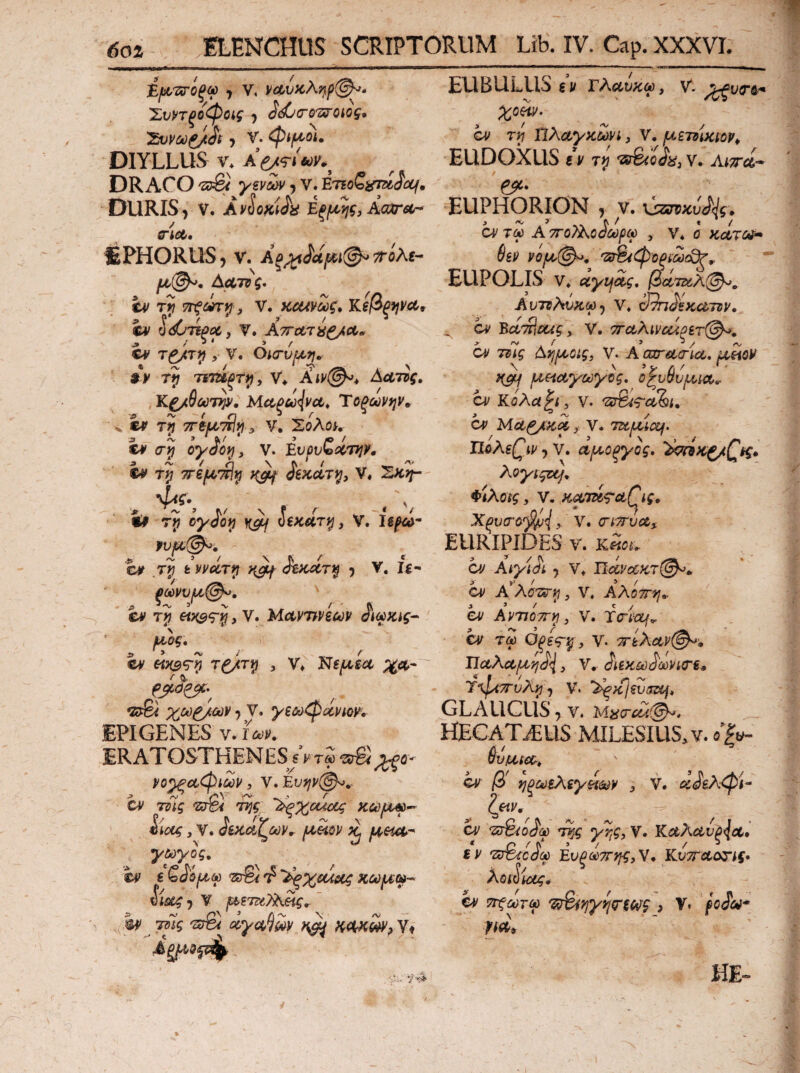 602 ELENCHUS SCRIPTORUM Lib. IV. Cap. XXXVI.
Ἐμπόρῳ, v. ναύκληρος.
Συντρόφοις, δευσοποιός.
Συνωρίδι, v. φιμοί.
DIYLLUS v. Ἀριστίων.
DRACO περὶ γενῶν, v. Ἐτεοβουτάδαι.
DURIS, v. Ἀνδοκίδου Ἑρμῆς, Ἀσπασία.
EPHORUS, v. Ἀρχιδάμιος πόλεμος. Δατός.
ἐν τῇ πρώτῃ, v. καινῶς. Κεβρῆνα.
ἐν δευτέρᾳ, v. Ἀπατούρια.
ἐν τρίτῃ, v. Οἰσύμη.
ἐν τῇ τετάρτῃ, v. Αἶνος. Δατός.
Κριθωτήν. Μαρώνεια. Τορώνην.
ἐν τῇ πέμπτῃ, v. Σόλοι.
ἐν τῇ ὀγδόῃ, v. Εὐρυβάτην.
ἐν τῇ πέμπτῃ καὶ δεκάτῃ, v. Σκῆψις.
ἐν τῇ ὀγδόῃ καὶ δεκάτῃ, v. Ἱερώνυμος.
ἐν τῇ ἐννάτῃ καὶ δεκάτῃ, v. Ἱερώνυμος.
ἐν τῇ εἰκοστῇ, v. Μαντινέων διοικισμός.
ἐν εἰκοστῇ τρίτῃ, v. Νεμέα χαράδρα.
περὶ χωρίων, v. γεωφάνιον.
EPIGENES v. Ἴων.
ERATOSTHENES ἐν τῷ περὶ χρονογραφιῶν, v. Εὔηνος.
ἐν τοῖς περὶ τῆς ἀρχαίας κωμῳδίας, v. δεκάζων. μεῖον καὶ μειαγωγός.
ἐν ἑβδόμῳ περὶ τῆς ἀρχαίας κωμῳδίας, v μεταλλεῖς.
ἐν τοῖς περὶ ἀγαθῶν καὶ κακῶν, v. Ἁρμοσταί
EUBULUS ἐν Γλαύκῳ, v. χρυσοχοεῖν.
ἐν τῇ Πλαγκῶνι, v. μετοίκιον.
EUDOXUS ἐν τῇ περιόδου, v. Λιπάρα.
EUPHORION, v. ὑπονκύδης.
ἐν τῷ Ἀπολλοδώρῳ, v. ὁ κάτωθεν νόμος. περιφοριῶδε.
EUPOLIS v. ἀγυιᾶς. βάταλος.
Αὐτολύκῳ, v. ἐπιδέκατον.
ἐν Βάπταις, v. παλιναίρετος.
ἐν τοῖς Δήμοις, v. Ἀσπασία. μεῖον καὶ μειαγωγός. ὀξυθύμια.
ἐν Κόλαξι, v. περίσταλοι.
ἐν Μαρικᾷ, v. ταμίαι.
Πόλεσιν, v. ἀμοργός. ὑποκρίσις. λογισταί.
Φίλοις, v. κατάστασις.
Χρυσογένει, v. σιπύα.
EURIPIDES v. Κεῖοι.
ἐν Αἰγίδι, v. Πάνακτος.
ἐν Ἀλόπῃ, v. Ἀλόπη.
ἐν Ἀντιόπῃ, v. Ὑσίαι.
ἐν τῷ Ὀρέστῃ, v. πέλανος.
Παλαμήδει, v. διεκωδώνισε.
Ὑψιπύλῃ, v. ἀρκτεῦσαι.
GLAUCUS, v. Μουσαῖος.
HECATÆUS MILESIUS, v. ὀξυθύμια.
ἐν β ἡρωελεγείων, v. ἀδελφίζειν.
ἐν περιόδῳ τῆς γῆς, v. Καλαύρεια.
ἐν περιόδῳ Εὐρώπης, v. Κύπασσις. λοιδίας.
ἐν πρώτῳ περιηγήσεως, v. ῥοδωνιά.
HE-